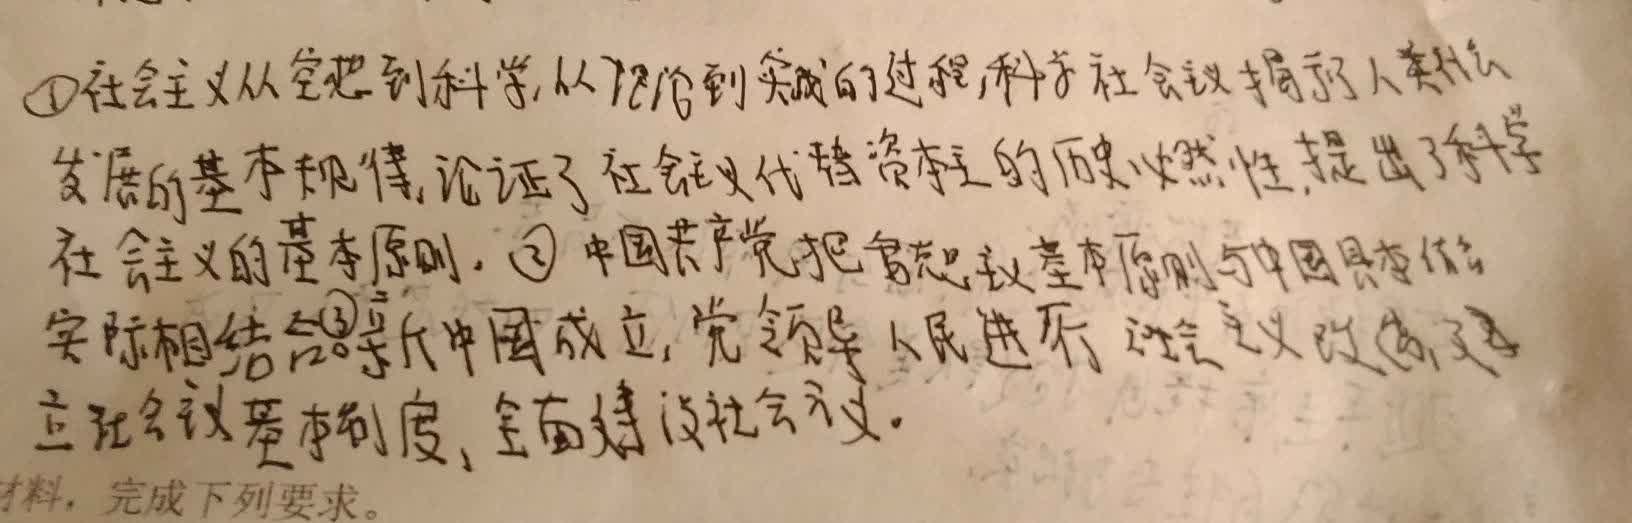 ①社会主义从空想到科学,从理论到实践的过程,科学社会主义揭示了人类社会
发展的基本规律,论证了社会主义代替资本主的历史必然性,提出了科学
社会主义的基本原则.②中国共产党把马克思主义基本原则与中国具体
实际相结合。③新中国成立,党领导人民进行社会主义改造,建
立社会主义基本制度、全面建设社会主义。
材料,完成下列要求。